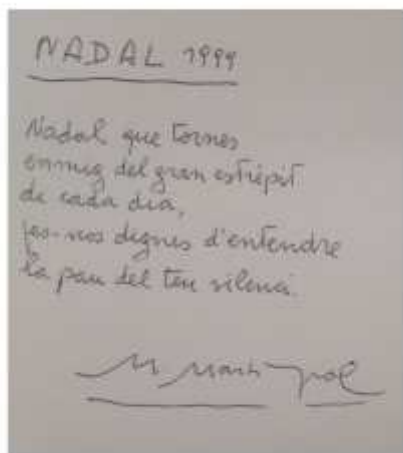 NADAL 1999
Nadal que tornes
enmig del gran estrèpit
de cada dia,
fes-nos dignes d'entendre
la pau del teu silenci.
M Martí Pol